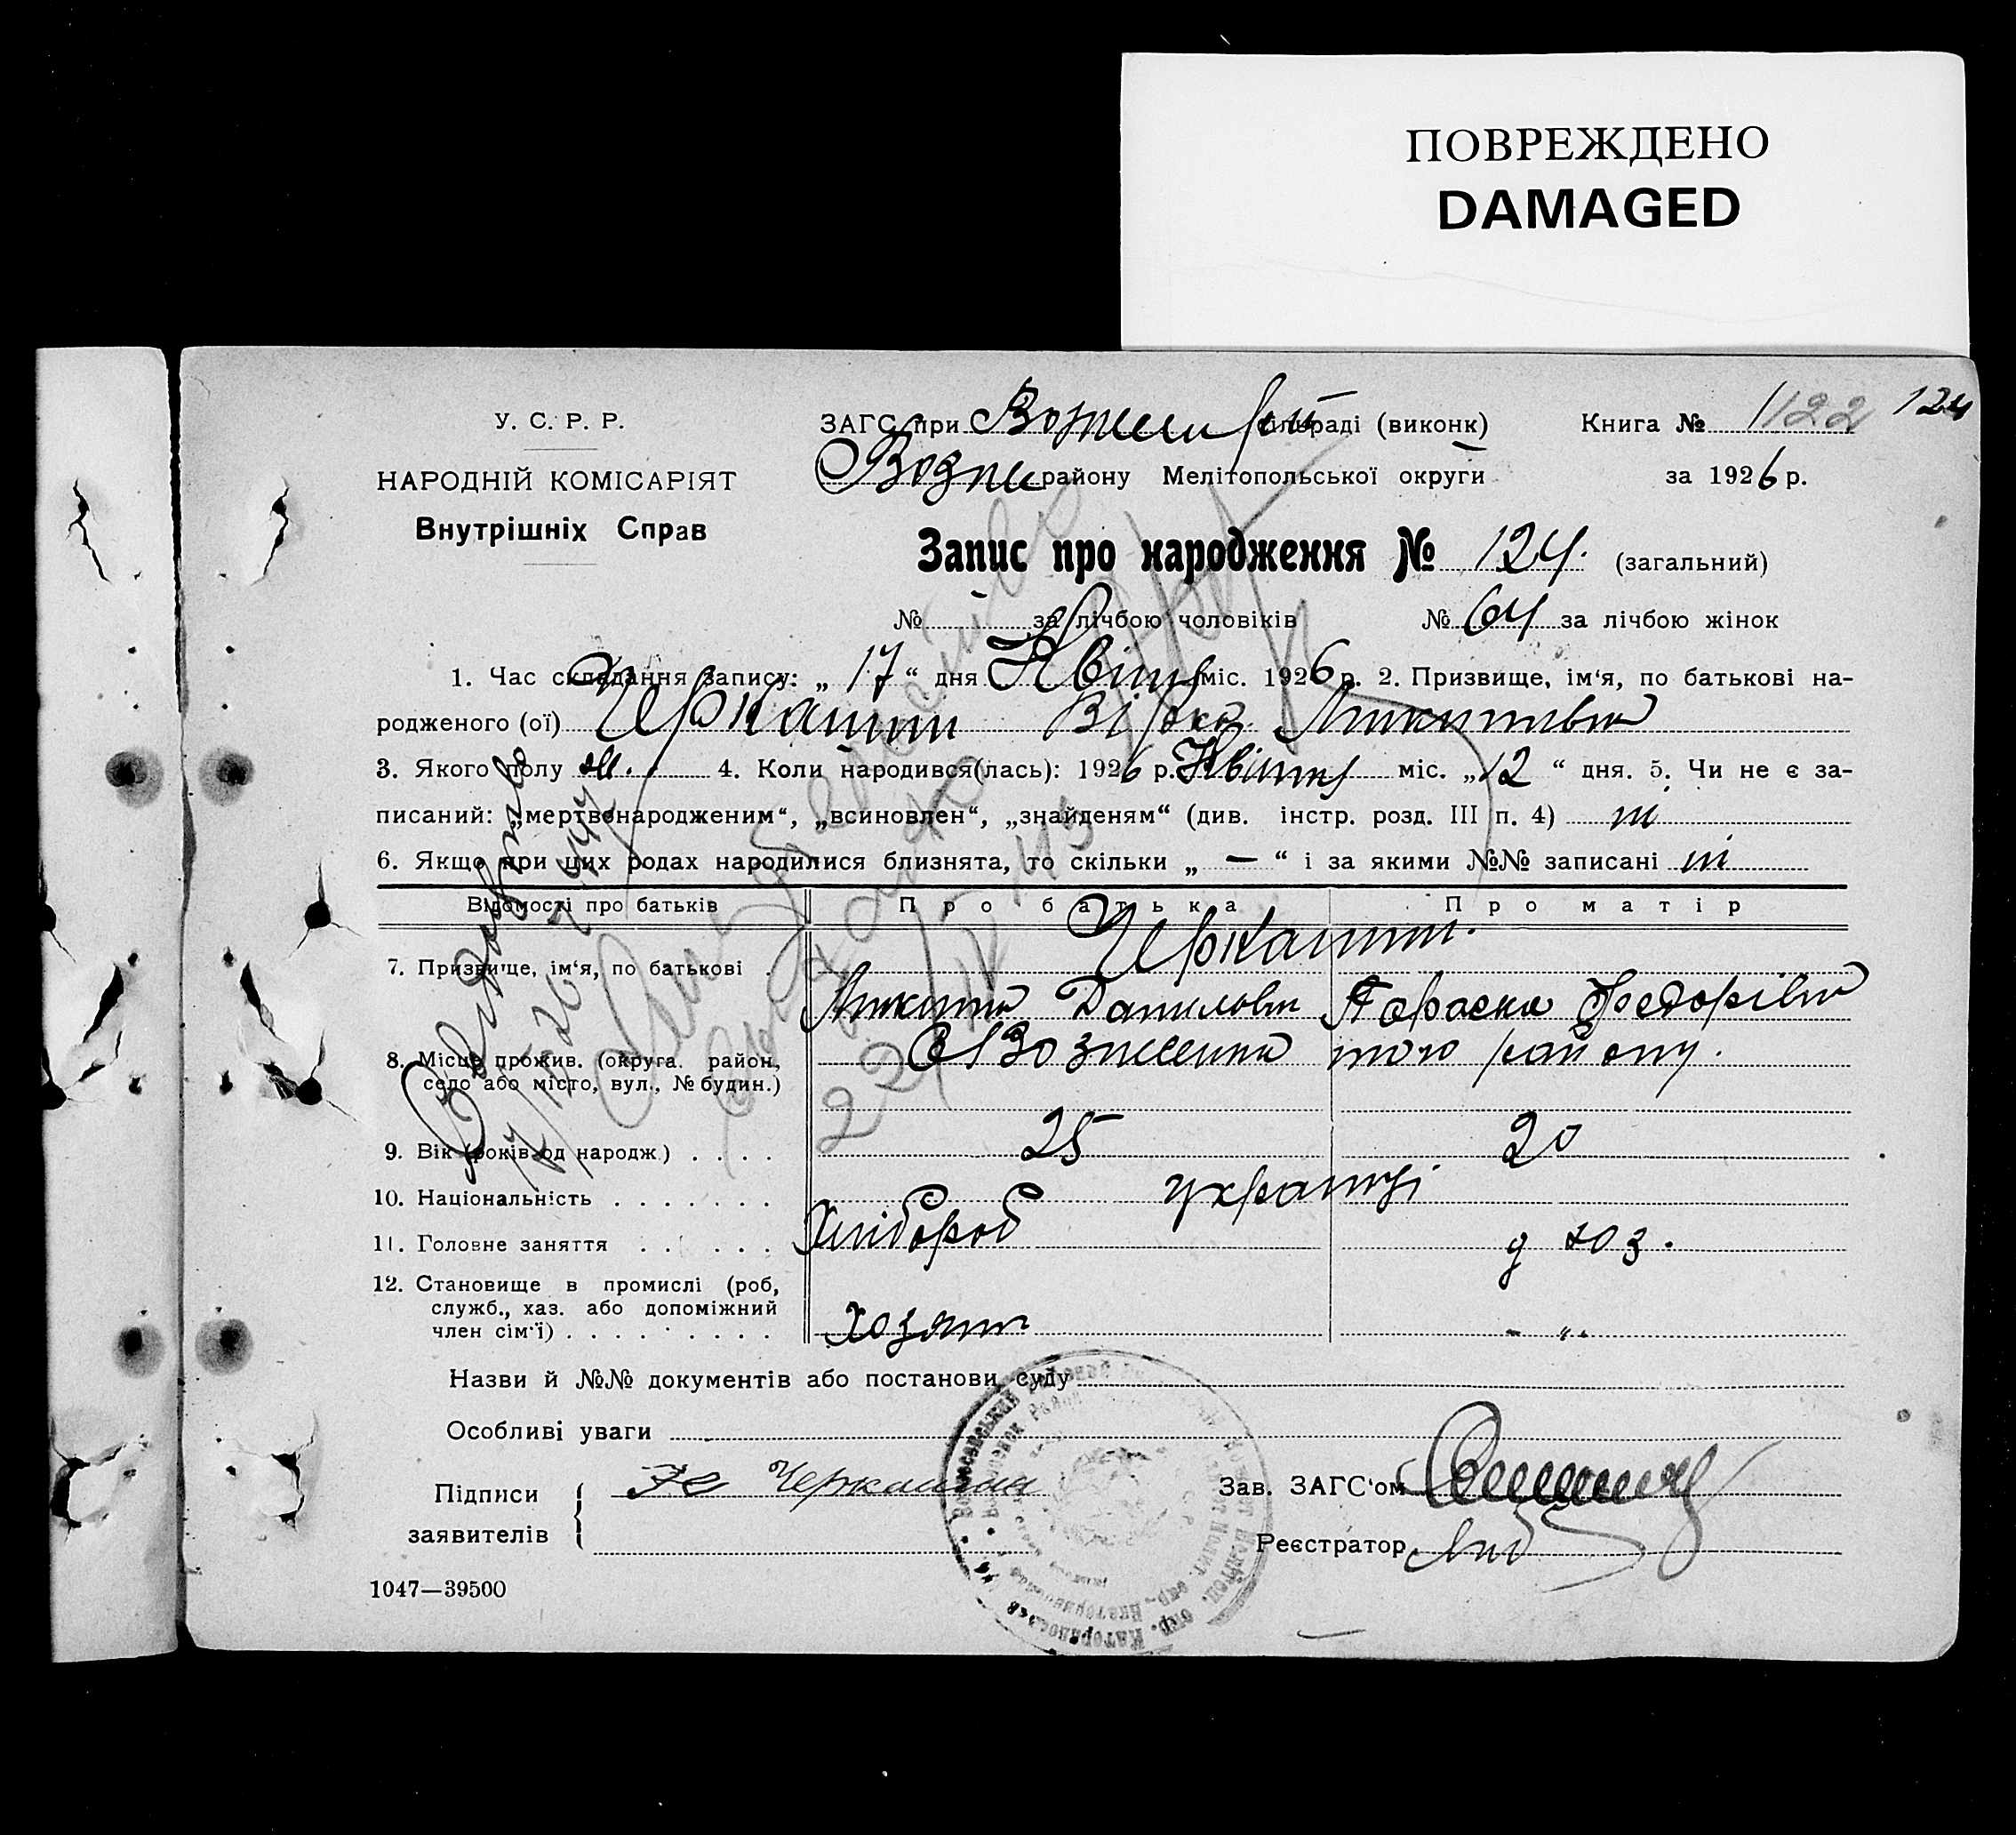 ПОВРЕЖДЕНО
DAMAGED
У. С. Р. Р.
НАРОДНІЙ КОМІСАРІЯТ
Внутрішніх Справ
ЗАГС при сільраді (виконк)
Возне району Мелітопольської округи
Книга № 122 124
за 1926 р.
Запис про народження № 124. (загальний)
№ за лічбою чоловіків № 64 за лічбою жінок
1. Час складання запису: „ 17 “ дня Квітня міс. 1926 р. 2. Призвище, ім‘я, по батькові на-
родженого (ої) Черкашин Вірка Микитівна
3. Якого полу ж. 4. Коли народився(лась): 1926 р. Квітня міс. „ 12 “ дня. 5. Чи не є за-
писаний: „мертвонародженим“, „всиновлен“, „знайденям“ (див. інстр. розд. III п. 4) ні
6. Якщо при цих родах народилися близнята, то скільки „ — “ і за якими №№ записані ні
Відомості про батьків Про батька Про матір
Черкашин.
7. Призвище, ім‘я, по батькові . Микита Данилович Параска Федорівна
8. Місце прожив. (округа. район, С Вознесенка того району.
село або місто, вул., № будин.)
9. Вік (років од народж.) . . . . 25 20
10. Національність . . . . . . . українці
11. Головне заняття . . . . . . Хлібороб д хоз.
12. Становище в промислі (роб,
служб., хаз. або допоміжний
член сім‘ї) . . . . . . . . . хозяин - „.
Назви й №№ документів або постанови суду
Особливі уваги
Підписи
заявителів
Черкашин
Зав. ЗАГС‘ом
Реєстратор
1047—39500